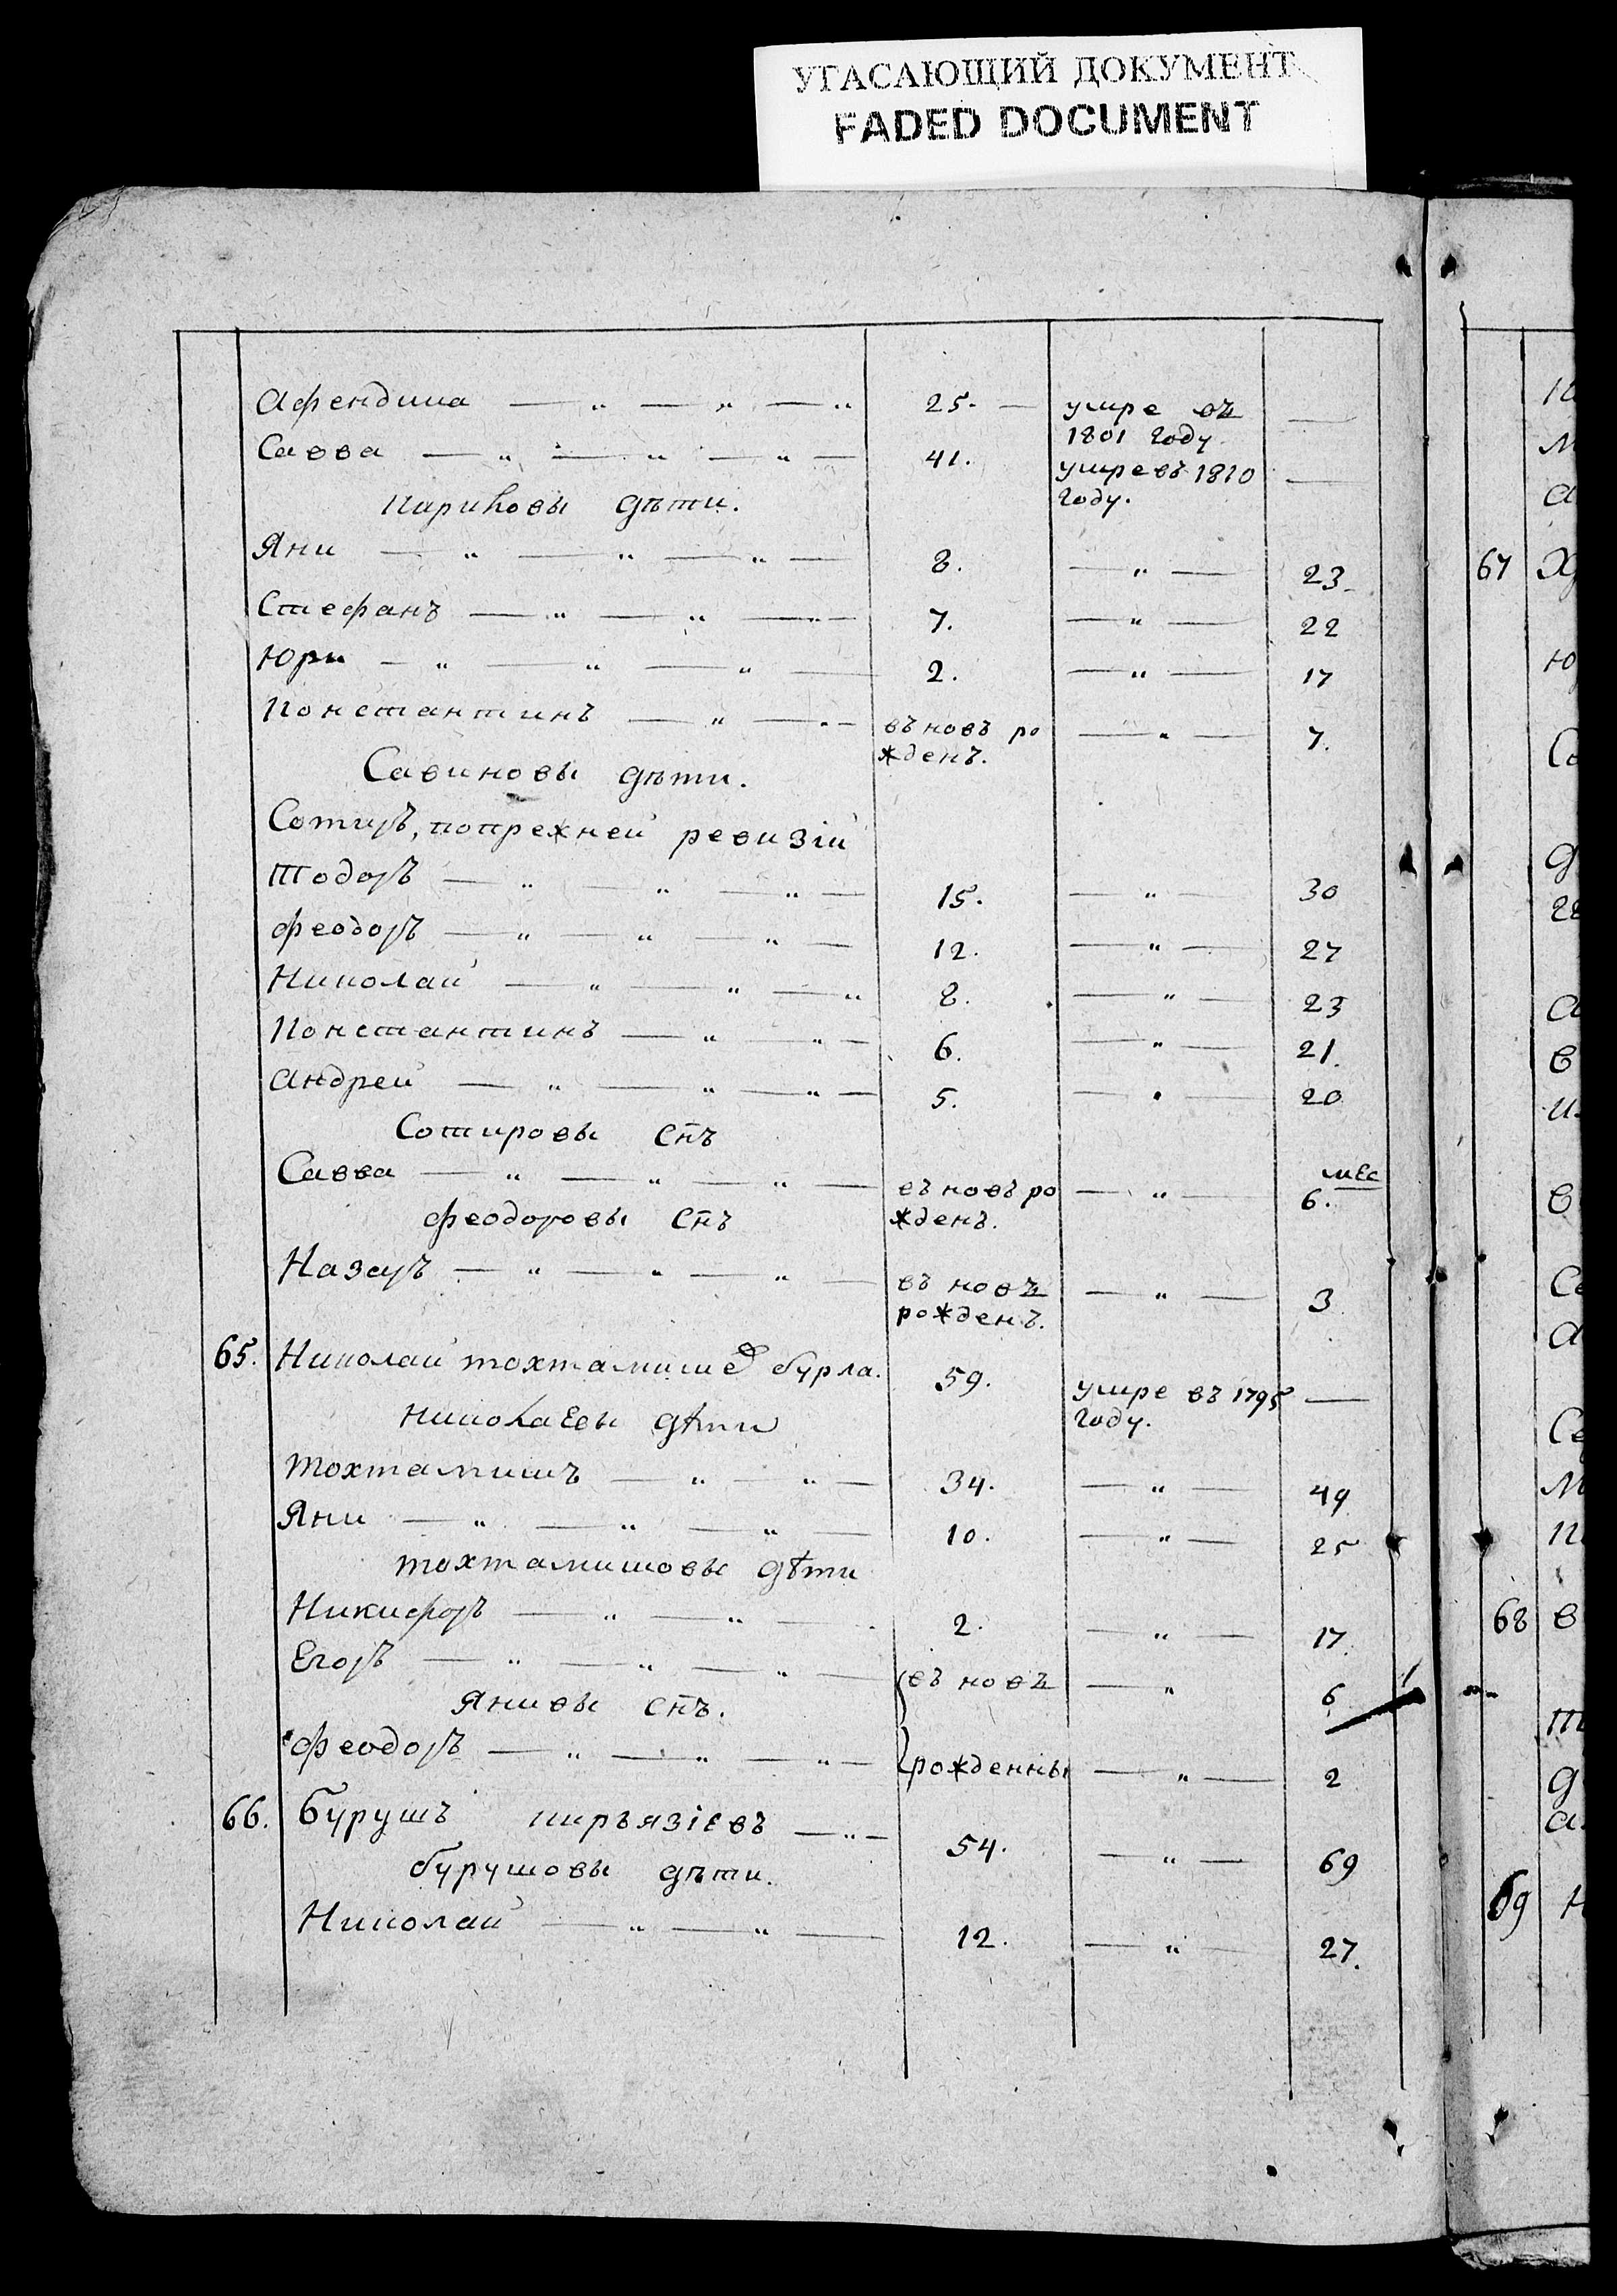 УГАСАЮЩИЙ ДОКУМЕНТ
FADED DOCUMENT
Афендина — „ — „ — „ 25. — умре въ —
1801 году.
Савва — „ — „ — „ — 41. умре въ 1810 —
году.
Кириковы дѣти.
Яни — „ — „ — „ — 8. — „ — 23
Стефанъ — „ — „ — „ — 7. — „ — 22
Юри — „ — „ — „ — 2. — „ — 17
Константинъ — „ — „ — въ новъ ро — „ — 7.
жденъ.
Савиновы дѣти.
Сотиръ, попрежней ревизіи
Тодоръ — „ — „ — „ — 15. — „ — 30
Феодоръ — „ — „ — „ — 12. — „ — 27
Николай — „ — „ — „ 8. — „ — 23
Константинъ — „ — „ — 6. — „ — 21.
Андрей — „ — „ — „ — 5. — „ — 20
Сотировы снъ
Савва — „ — „ — „ — въ новъ ро — „ — мес
6.
жденъ.
Феодоровы снъ
Назаръ — „ — „ — „ — въ новъ — „ — 3
рожденъ.
65. Николай тохтамиш бурла. 59. умре въ 1795 —
году.
Николаевы дѣти
Тохтамишъ — „ — „ — 34. — „ — 49
Яни — „ — „ — „ — 10. — „ — 25
Тохтамишовы дѣти
Никифоръ — „ — „ — 2. — „ — 17.
Егоръ — „ — „ — „ — въ новъ — „ 6
Янивы снъ.
Феодоръ — „ — „ — „ — рожденны — „ — 2
66. Бурушъ пиръязіевъ — „ — 54. — „ — 69
бурушовы дѣти.
Николай — „ — „ — 12. — „ — 27.
67
68
69